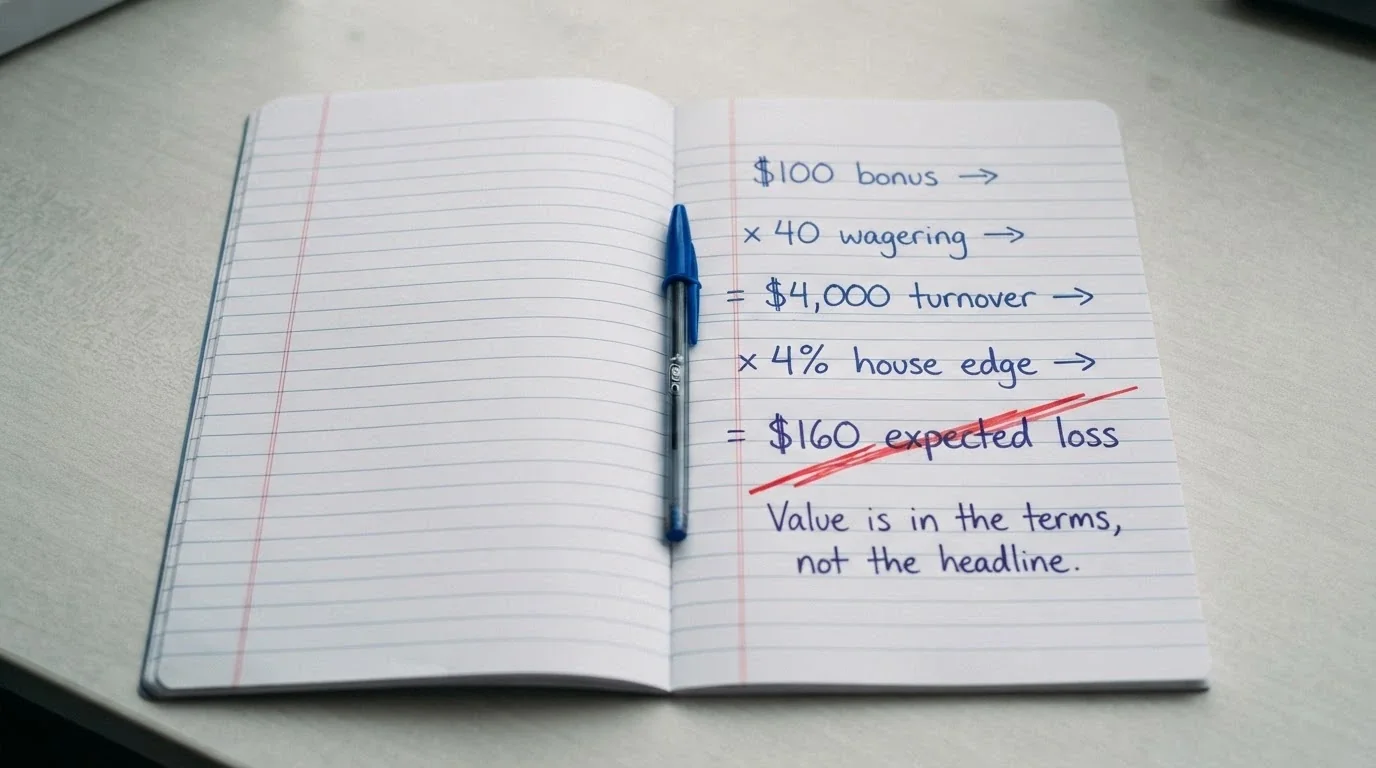 $100 bonus →
× 40 wagering →
= $4,000 turnover →
× 4% house edge →
= $160 expected loss
Value is in the terms,
not the headline.